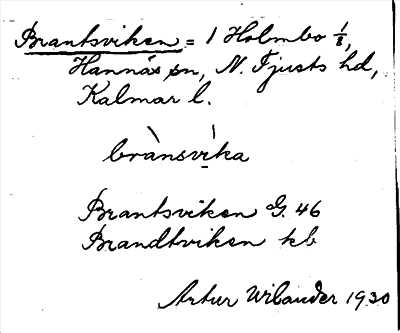 Brantsviken = 1 Holmbo 1/8,
Hannäs sn, N. Tjusts hd,
Kalmar l.
brànsvi̠ka
Brantsviken G. 46
Brandtviken kb
Artur Wilander 1930